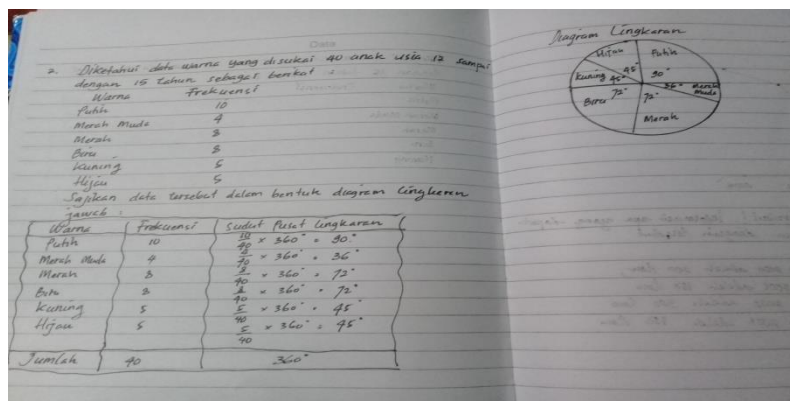 2. Diketahui data warna yang disukai 40 anak usia 12 sampai
dengan 15 tahun sebagai berikut :
Warna Frekuensi
Putih 10
Merah Muda 4
Merah 8
Biru 8
Kuning 5
Hijau 5
Sajikan data tersebut dalam bentuk diagram lingkaran
jawab :
Warna Frekuensi Sudut Pusat Lingkaran
Putih 10 10/40 × 360° = 90°
Merah Muda 4 × 360° = 36°
Merah 8 8/40 × 360° = 72°
Biru 8 8/40 × 360° = 72°
Kuning 5 5/40 × 360° = 45°
Hijau 5 5/40 × 360° = 45°
Jumlah 40 360°
Diagram Lingkaran
Hijau Putih
45° 90°
Kuning 45° 36° Merah Muda
Biru 72° 72°
Merah